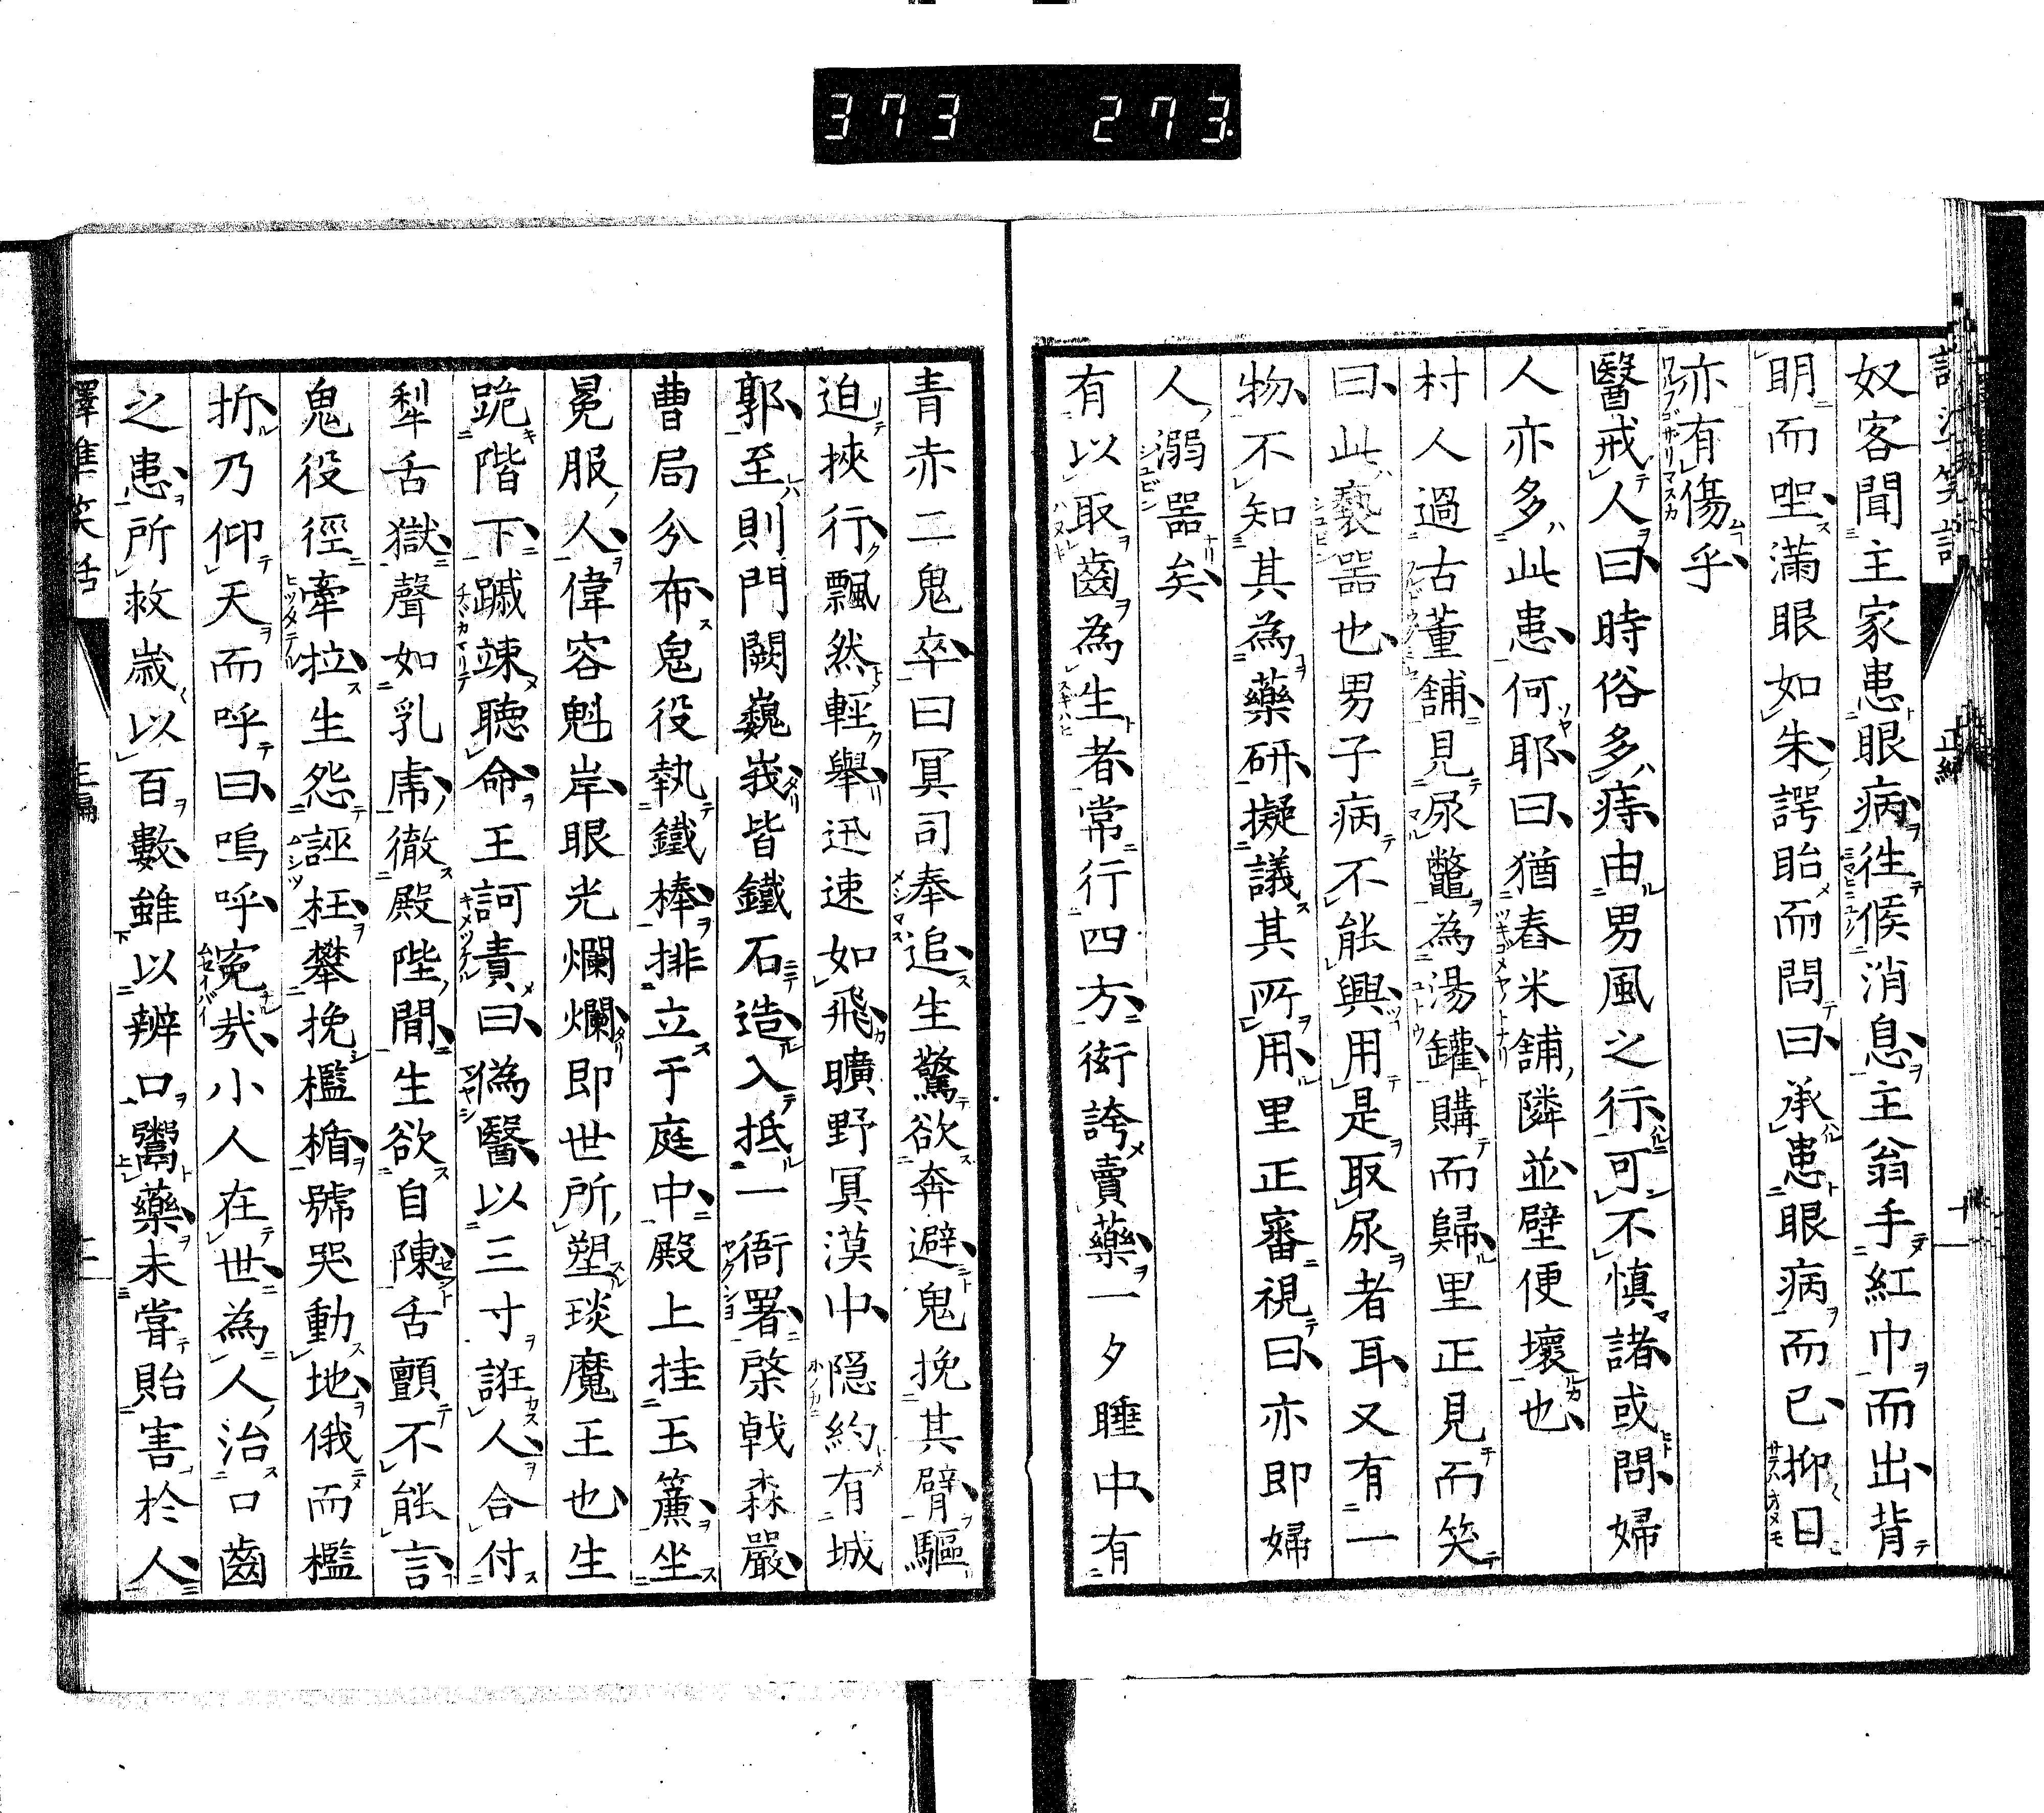 373 273
奴客聞主家患眼病徃候消息主翁手紅巾而出背
明而坐滿眼如朱諤眙而問曰承患眼病而已抑日
亦有傷乎
醫戒人曰時俗多痔由男風之行可不慎諸或問婦
人亦多此患何耶曰猶舂米舖隣並壁便壞也
村人過古董舖見尿鼈為湯罐購而歸里正見而笑
曰此褻噐也男子病不能興用是取尿者耳又有一
物不知其為藥研擬議其所用里正審視曰亦即婦
人溺噐矣
有以取齒為生者常行四方衒誇賣藥一夕睡中有
青赤二鬼卒曰冥司奉追生驚欲奔避鬼挽其臂驅
迫挾行飄然輕舉迅速如飛曠野冥漠中隠約有城
郭至則門闕巍峩皆鐵石造入抵一衙署棨戟森嚴
曹局分布鬼役執鐵棒排立于庭中殿上挂玉簾坐
冕服人偉容魁岸眼光爛爛即世所塑琰魔王也生
跪階下蹴竦聴命王訶責曰偽醫以三寸誑人合付
犁舌獄聲如乳虎徹殿陛間生欲自陳舌顫不能言
鬼役徑牽拉生怨誣枉攀挽檻楯號哭動地俄而檻
折乃仰天而呼曰嗚呼寃㢤小人在世為人治口齒
之患所救歳以百數雖以辨口鬻藥未嘗貽害於人
譯準笑話